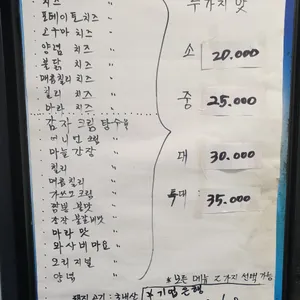 치즈 〃
포테이토 치즈 〃
고구마 치즈 〃
양념 치즈 〃
불닭 치즈 〃
매콤칠리 치즈 〃
칠리 치즈 〃
마라 치즈 〃
감자 크림 탕수육
허니버터 〃
마늘 간장 〃
칠리 〃
매콤칠리 〃
가쓰오 크림 〃
짬뽕 불맛 〃
간장 불갈비맛 〃
마라 맛 〃
와사비마요 〃
오리지널 〃
양념 〃
두가지 맛
소 20.000
중 25.000
대 30.000
특대 35.000
*모든 메뉴 2가지 선택 가능
국내산
*기업은행